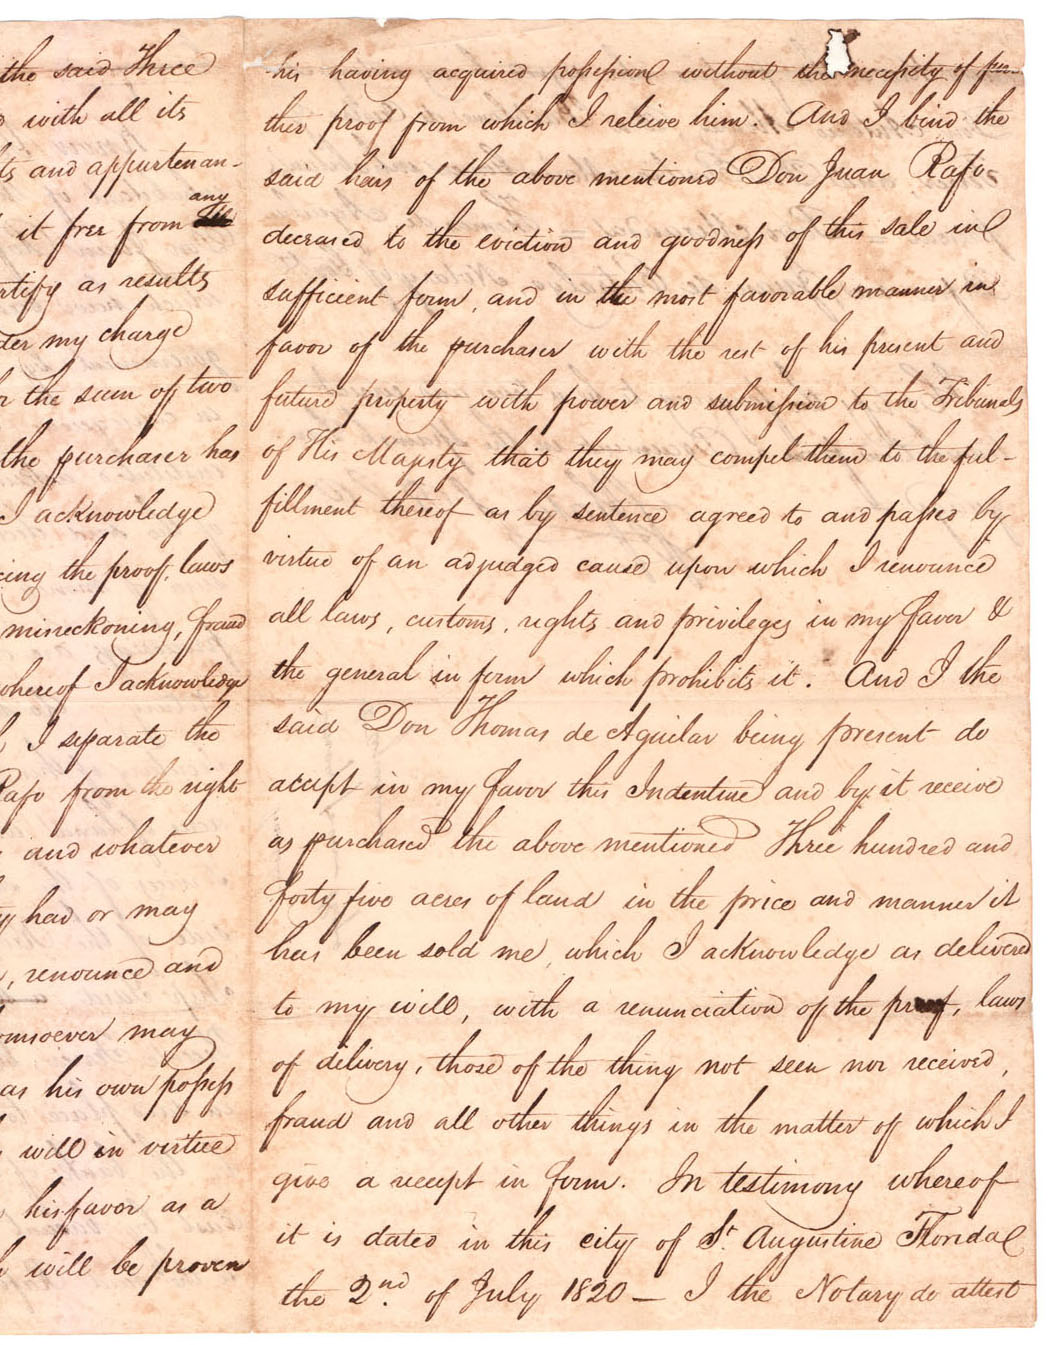 the said Three
with all its
and appurtenan-
any
it free from
as results
my charge
the sum of two
the purchaser has
I acknowledge
the proof, laws
misreckoning, fraud
whereof I acknowledge
I separate the
Rafo from the right
and whatever
had or may
, renounce and
may
as his own possess
will in virtue
his favor as a
will be proven
his having acquired possession without the necessity of fur-
ther proof from which I releive him. And I bind the
said heirs of the above mentioned Don Juan Rafo
deceased to the eviction and goodness of this sale in
sufficient form, and in the most favorable manner in
favor of the purchaser with the rest of his present and
future property with power and submission to the Tribunals
of His Majesty that they may compel them to the ful-
fillment thereof as by sentence agreed to and passed by
virtue of an adjudged cause upon which I renounce
all laws, customs, rights and privileges in my favor &
the general in form which prohibits it. And I the
said Don Thomas de Aguilar being present do
accept in my favor this Indenture and by it receive
as purchased the above mentioned Three hundred and
forty five acres of land in the price and manner it
has been sold me, which I acknowledge as delivered
to my will, with a renunciation of the proof, laws
of delivery, those of the thing not seen nor received,
fraud and all other things in the matter of which I
give a receipt in form. In testimony whereof
it is dated in this city of St. Augustine Florida
the 2nd. of July 1820 — I the Notary do attest